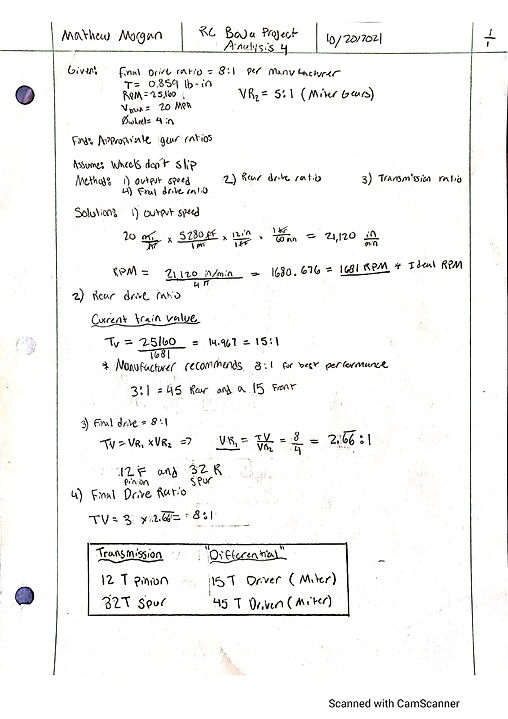 Mathew Morgan
RC Baja Project
Analysis 4
10/20/2021
1/1
Given: Final Drive ratio = 8:1 per manufacturer
T = 0.859 lb-in
RPM = 25,160
VR₂ = 5:1 (Miter Gears)
Vmax = 20 MPH
Øwheel = 4 in
Find: Appropriate gear ratios
Assume: Wheels don't slip
Method: 1) output speed 2) Rear drive ratio 3) Transmission ratio
4) Final drive ratio
Solution: 1) output speed
20 mi/hr × 5280 ft/1 mi × 12 in/1 ft × 1 hr/60 mn = 21,120 in/mn
RPM = 21,120 in/min / 4π = 1680.676 = 1681 RPM * Ideal RPM
2) Rear drive ratio
Current train value
Tv = 25160/1681 = 14.967 = 15:1
* Manufacturer recommends 8:1 for best performance
3:1 = 45 Rear and a 15 Front
3) Final drive = 8:1
TV = VR₁ × VR₂ => VR₁ = TV/VR₂ = 8/4 = 2.66:1
12 F and 32 R
pinion spur
4) Final Drive Ratio
TV = 3 × 2.66 = 8:1
Transmission "Differential"
12 T pinion 15 T Driver (Miter)
32T Spur 45 T Driven (Miter)
Scanned with CamScanner